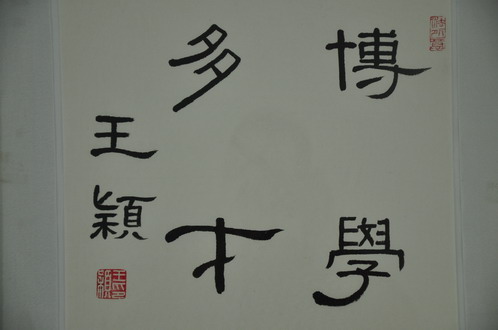 博學
多才
王穎